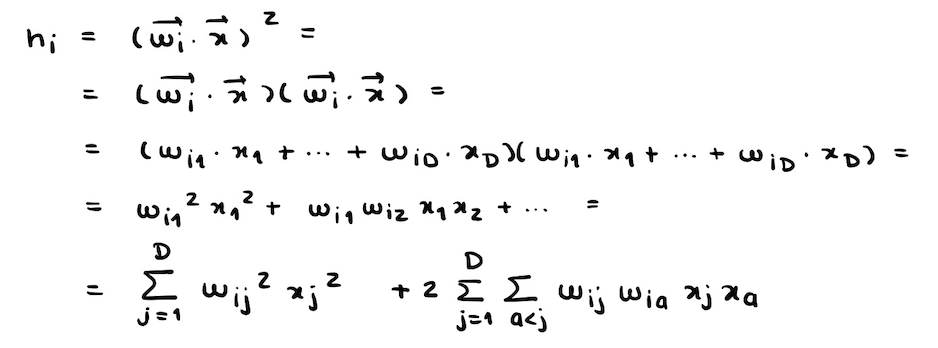 h_i = (\vec{w_i} · \vec{x})^2 =
= (\vec{w_i} · \vec{x})(\vec{w_i} · \vec{x}) =
= (w_{i1} · x_1 + ... + w_{iD} · x_D)(w_{i1} · x_1 + ... + w_{iD} · x_D) =
= w_{i1}^2 x_1^2 + w_{i1} w_{i2} x_1 x_2 + ... =
= \sum_{j=1}^{D} w_{ij}^2 x_j^2 + 2 \sum_{j=1}^{D} \sum_{a<j} w_{ij} w_{ia} x_j x_a